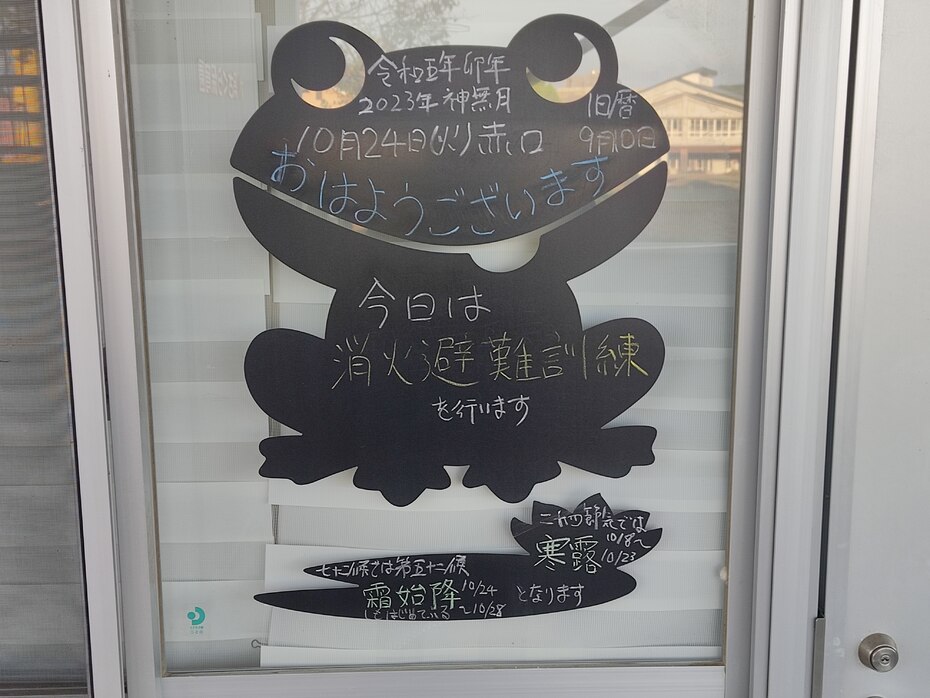 令和五年 卯年
2023年 神無月
旧暦
10月24日(火) 赤口
9月10日
おはようございます
今日は
消火避難訓練
を行います
二十四節気では
寒露
10/8~
10/23
七十二候では第五十二候
霜始降
10/24
~10/28
となります